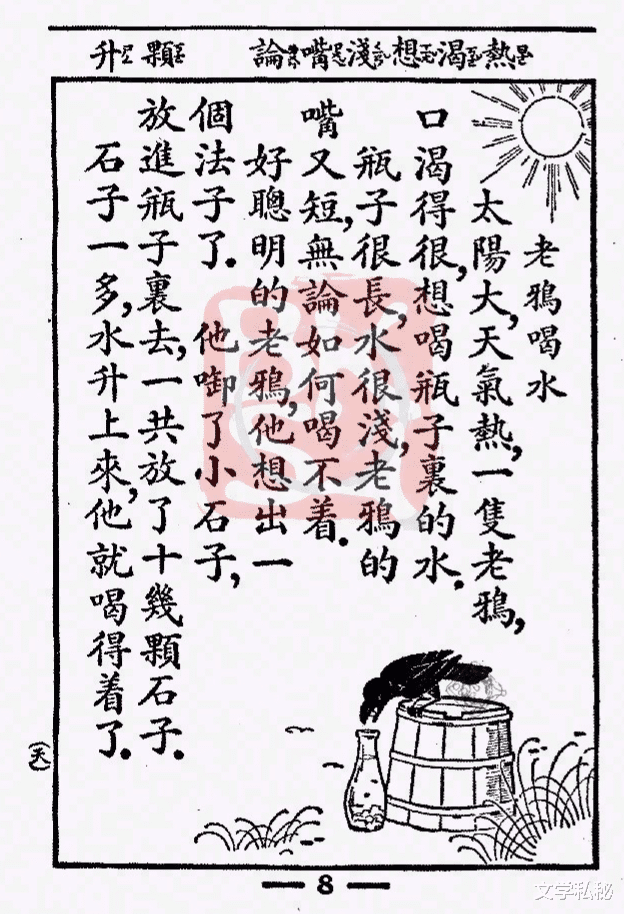 熱渴想淺嘴論 顆升
老鴉喝水
太陽大,天氣熱,一隻老鴉,
口渴得很,想喝瓶子裏的水.
瓶子很長,水很淺,老鴉的
嘴又短,無論如何喝不着.
好聰明的老鴉,他想出一
個法子了. 他啣了小石子,
放進瓶子裏去,一共放了十幾顆石子.
石子一多,水升上來,他就喝得着了.
8
文学私秘